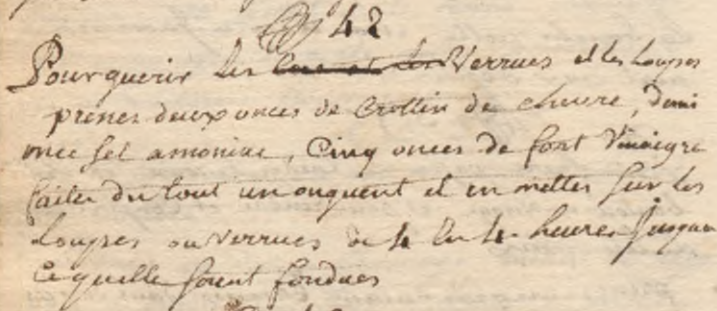 42
Pour guerir les Verrues et les loupes
prenes deux onces de Crottin de chevre, demi
once sel amoniac, Cinq onces de fort Vinaigre
faites du tout un onguent et en mettes sur les
loupes ou verrues de 4 en 4 heures Jusqua
ce quelle soient fondues